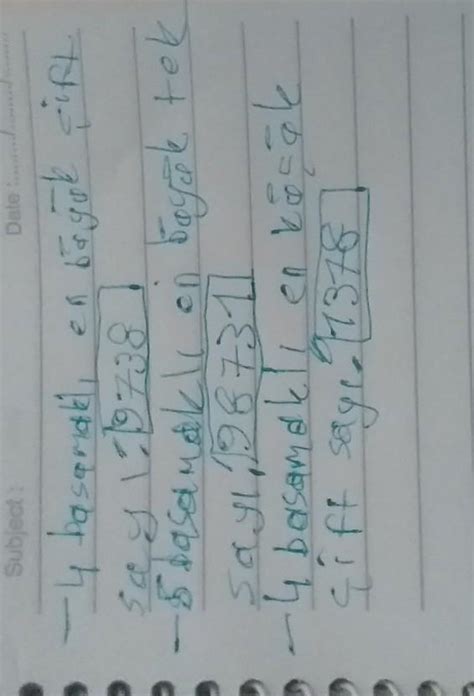 Subject : Date :
- 4 basamaklı en büyük çift
sayı: 9738
- 5 basamaklı en büyük tek
sayı, 98731
- 4 basamaklı en küçük
çift sayı. 1378